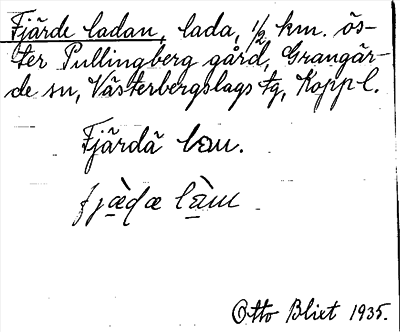 Fjärde ladan, lada, 1/2 km. ös-
ter Pullingberg gård, Grangär-
de sn, Västerbergslags tg, Koppl.
Fjärdä lan.
Otto Blixt 1935.